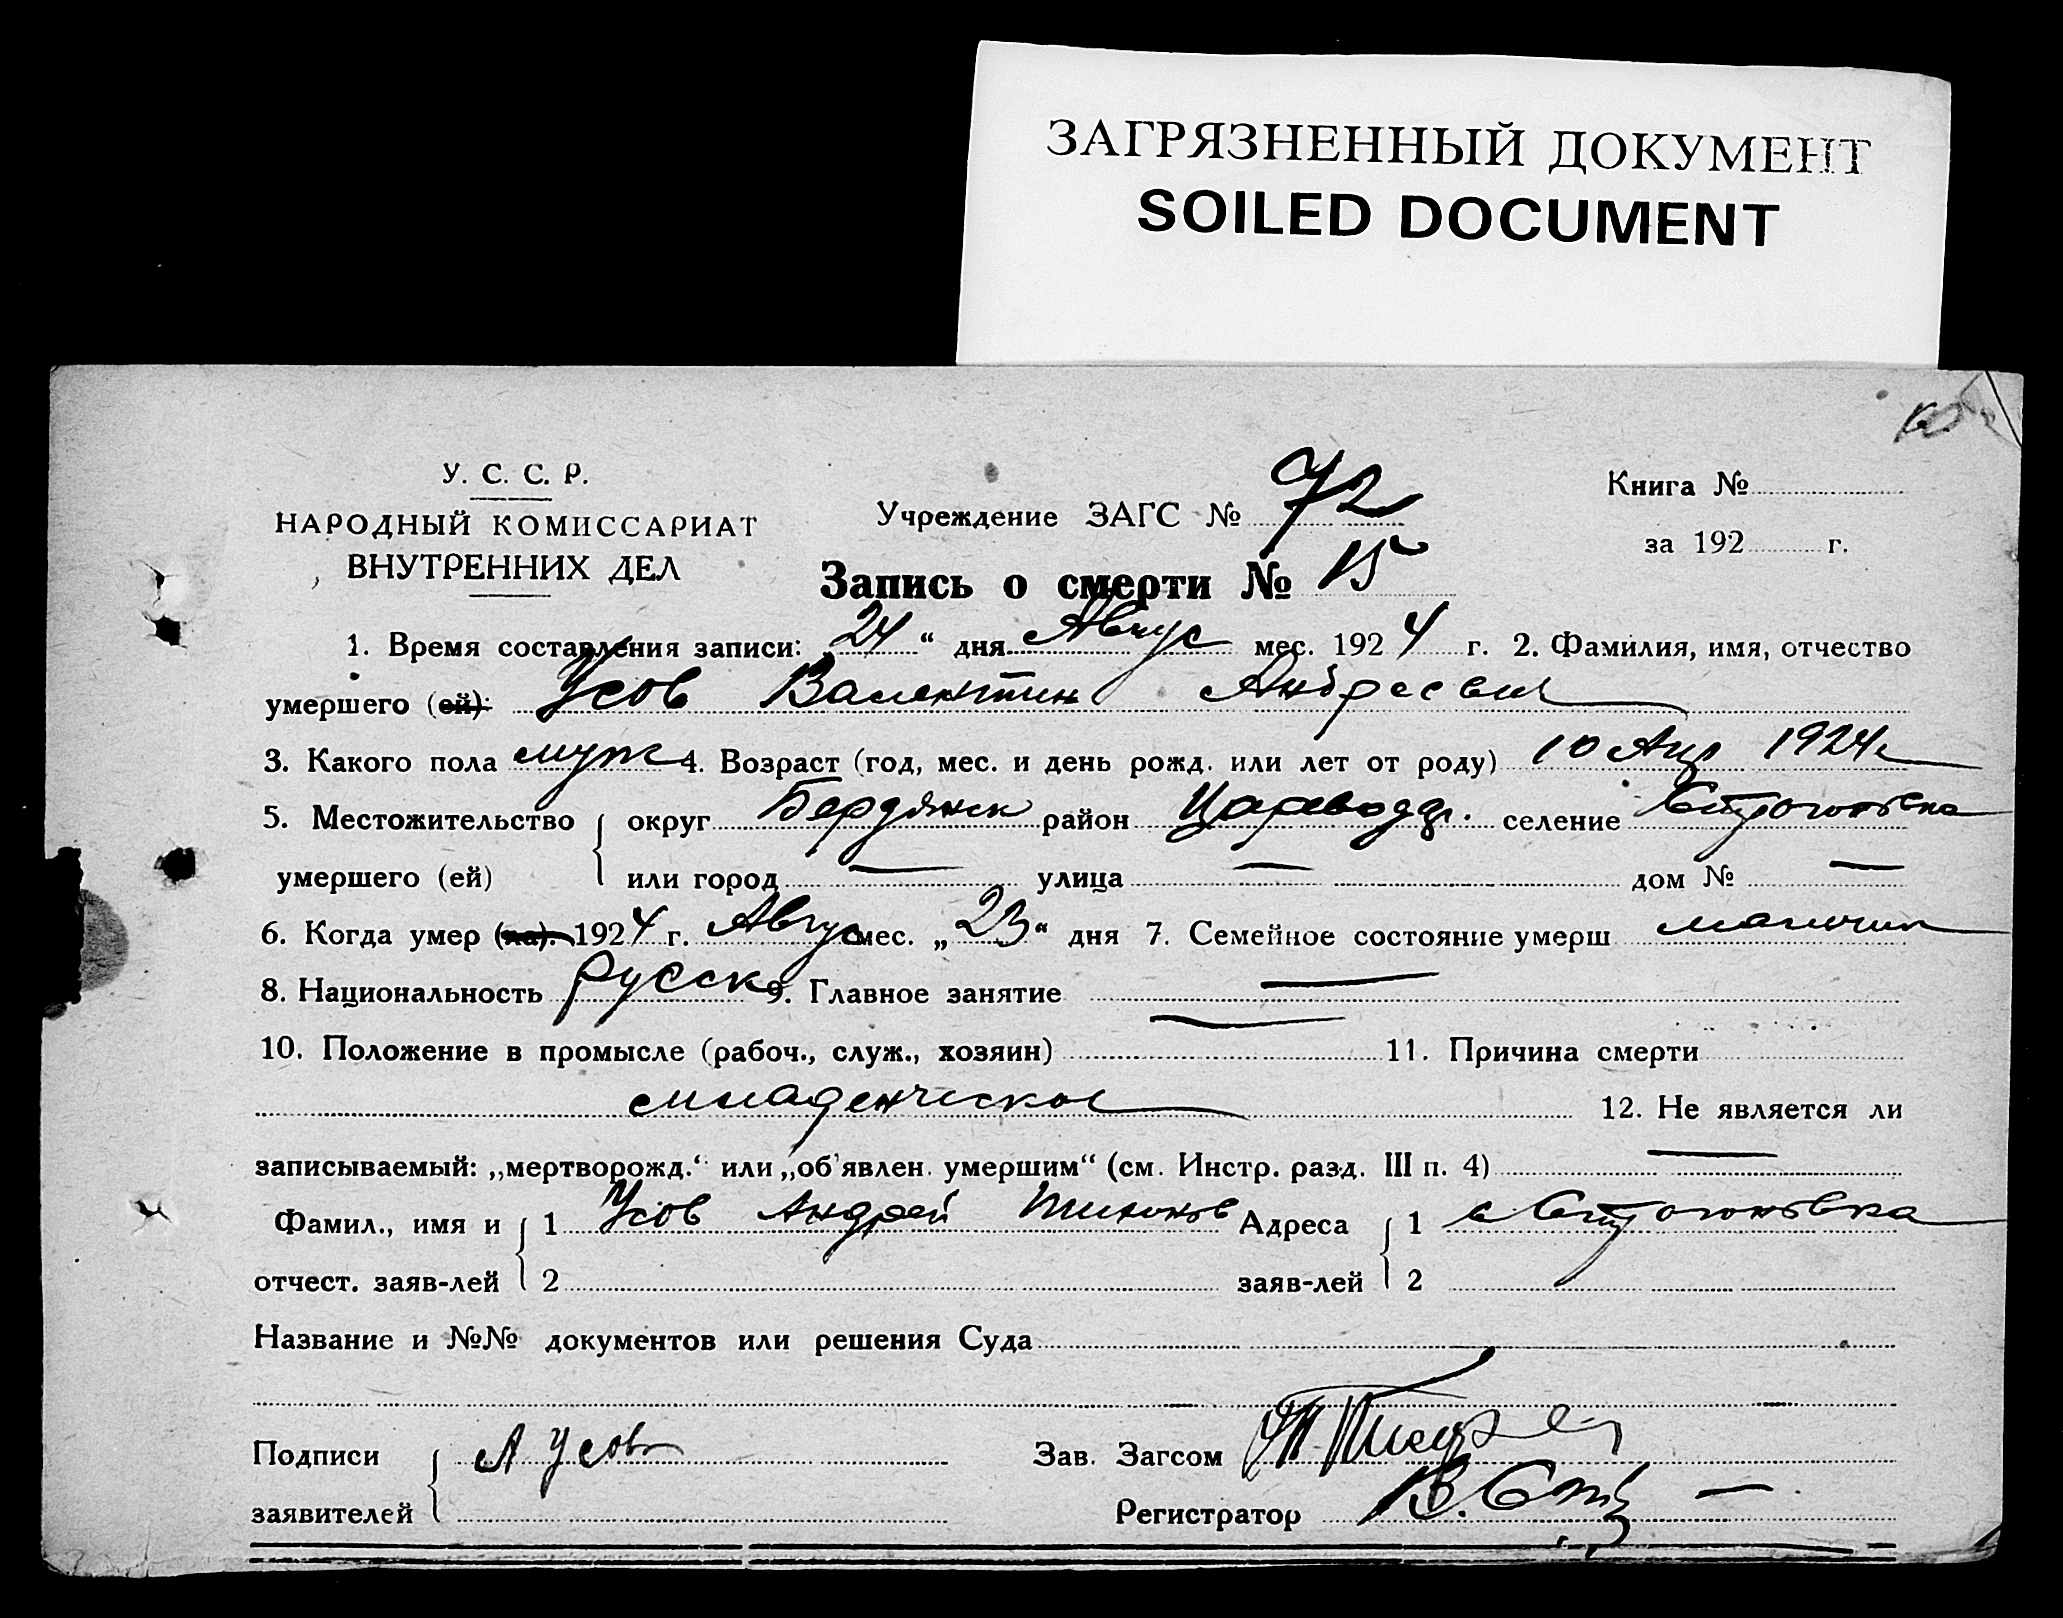 ЗАГРЯЗНЕННЫЙ ДОКУМЕНТ
SOILED DOCUMENT
У. С. С. Р.
НАРОДНЫЙ КОМИССАРИАТ
ВНУТРЕННИХ ДЕЛ
Учреждение ЗАГС № 72
Книга №
за 192 г.
Запись о смерти № 15
1. Время составления записи: 24“ дня Авгус мес. 1924 г. 2. Фамилия, имя, отчество
умершего (ей): Усов Валентин Андреевич
3. Какого пола муж 4. Возраст (год, мес. и день рожд. или лет от роду) 10 Апр 1924г
5. Местожительство округ Бердянск район Цареводар. селение
умершего (ей) или город — улица — дом № —
6. Когда умер (ла). 1924 г. Авгус мес. „23“ дня 7. Семейное состояние умерш
8. Национальность русск 9. Главное занятие —
10. Положение в промысле (рабоч., служ., хозяин) — 11. Причина смерти
младенческая 12. Не является ли
записываемый: „мертворожд.“ или „об'явлен. умершим“ (см. Инстр. разд. III п. 4) —
Фамил., имя и 1 Усов Андрей Тихонов Адреса 1 с
отчест. заяв-лей 2 заяв-лей 2
Название и №№ документов или решения Суда
Подписи А Усов Зав. Загсом
заявителей Регистратор